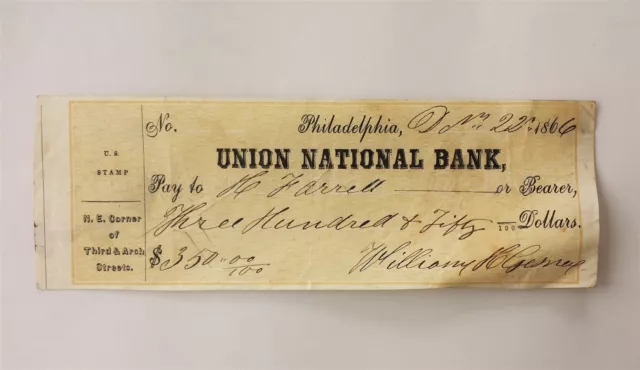 No. Philadelphia, 22 1866
UNION NATIONAL BANK,
Pay to H Farrell or Bearer,
Three Hundred & Fifty /100 Dollars.
$350.00/100 William
U.S.
STAMP
N. E. Corner
of
Third & Arch
Streets.